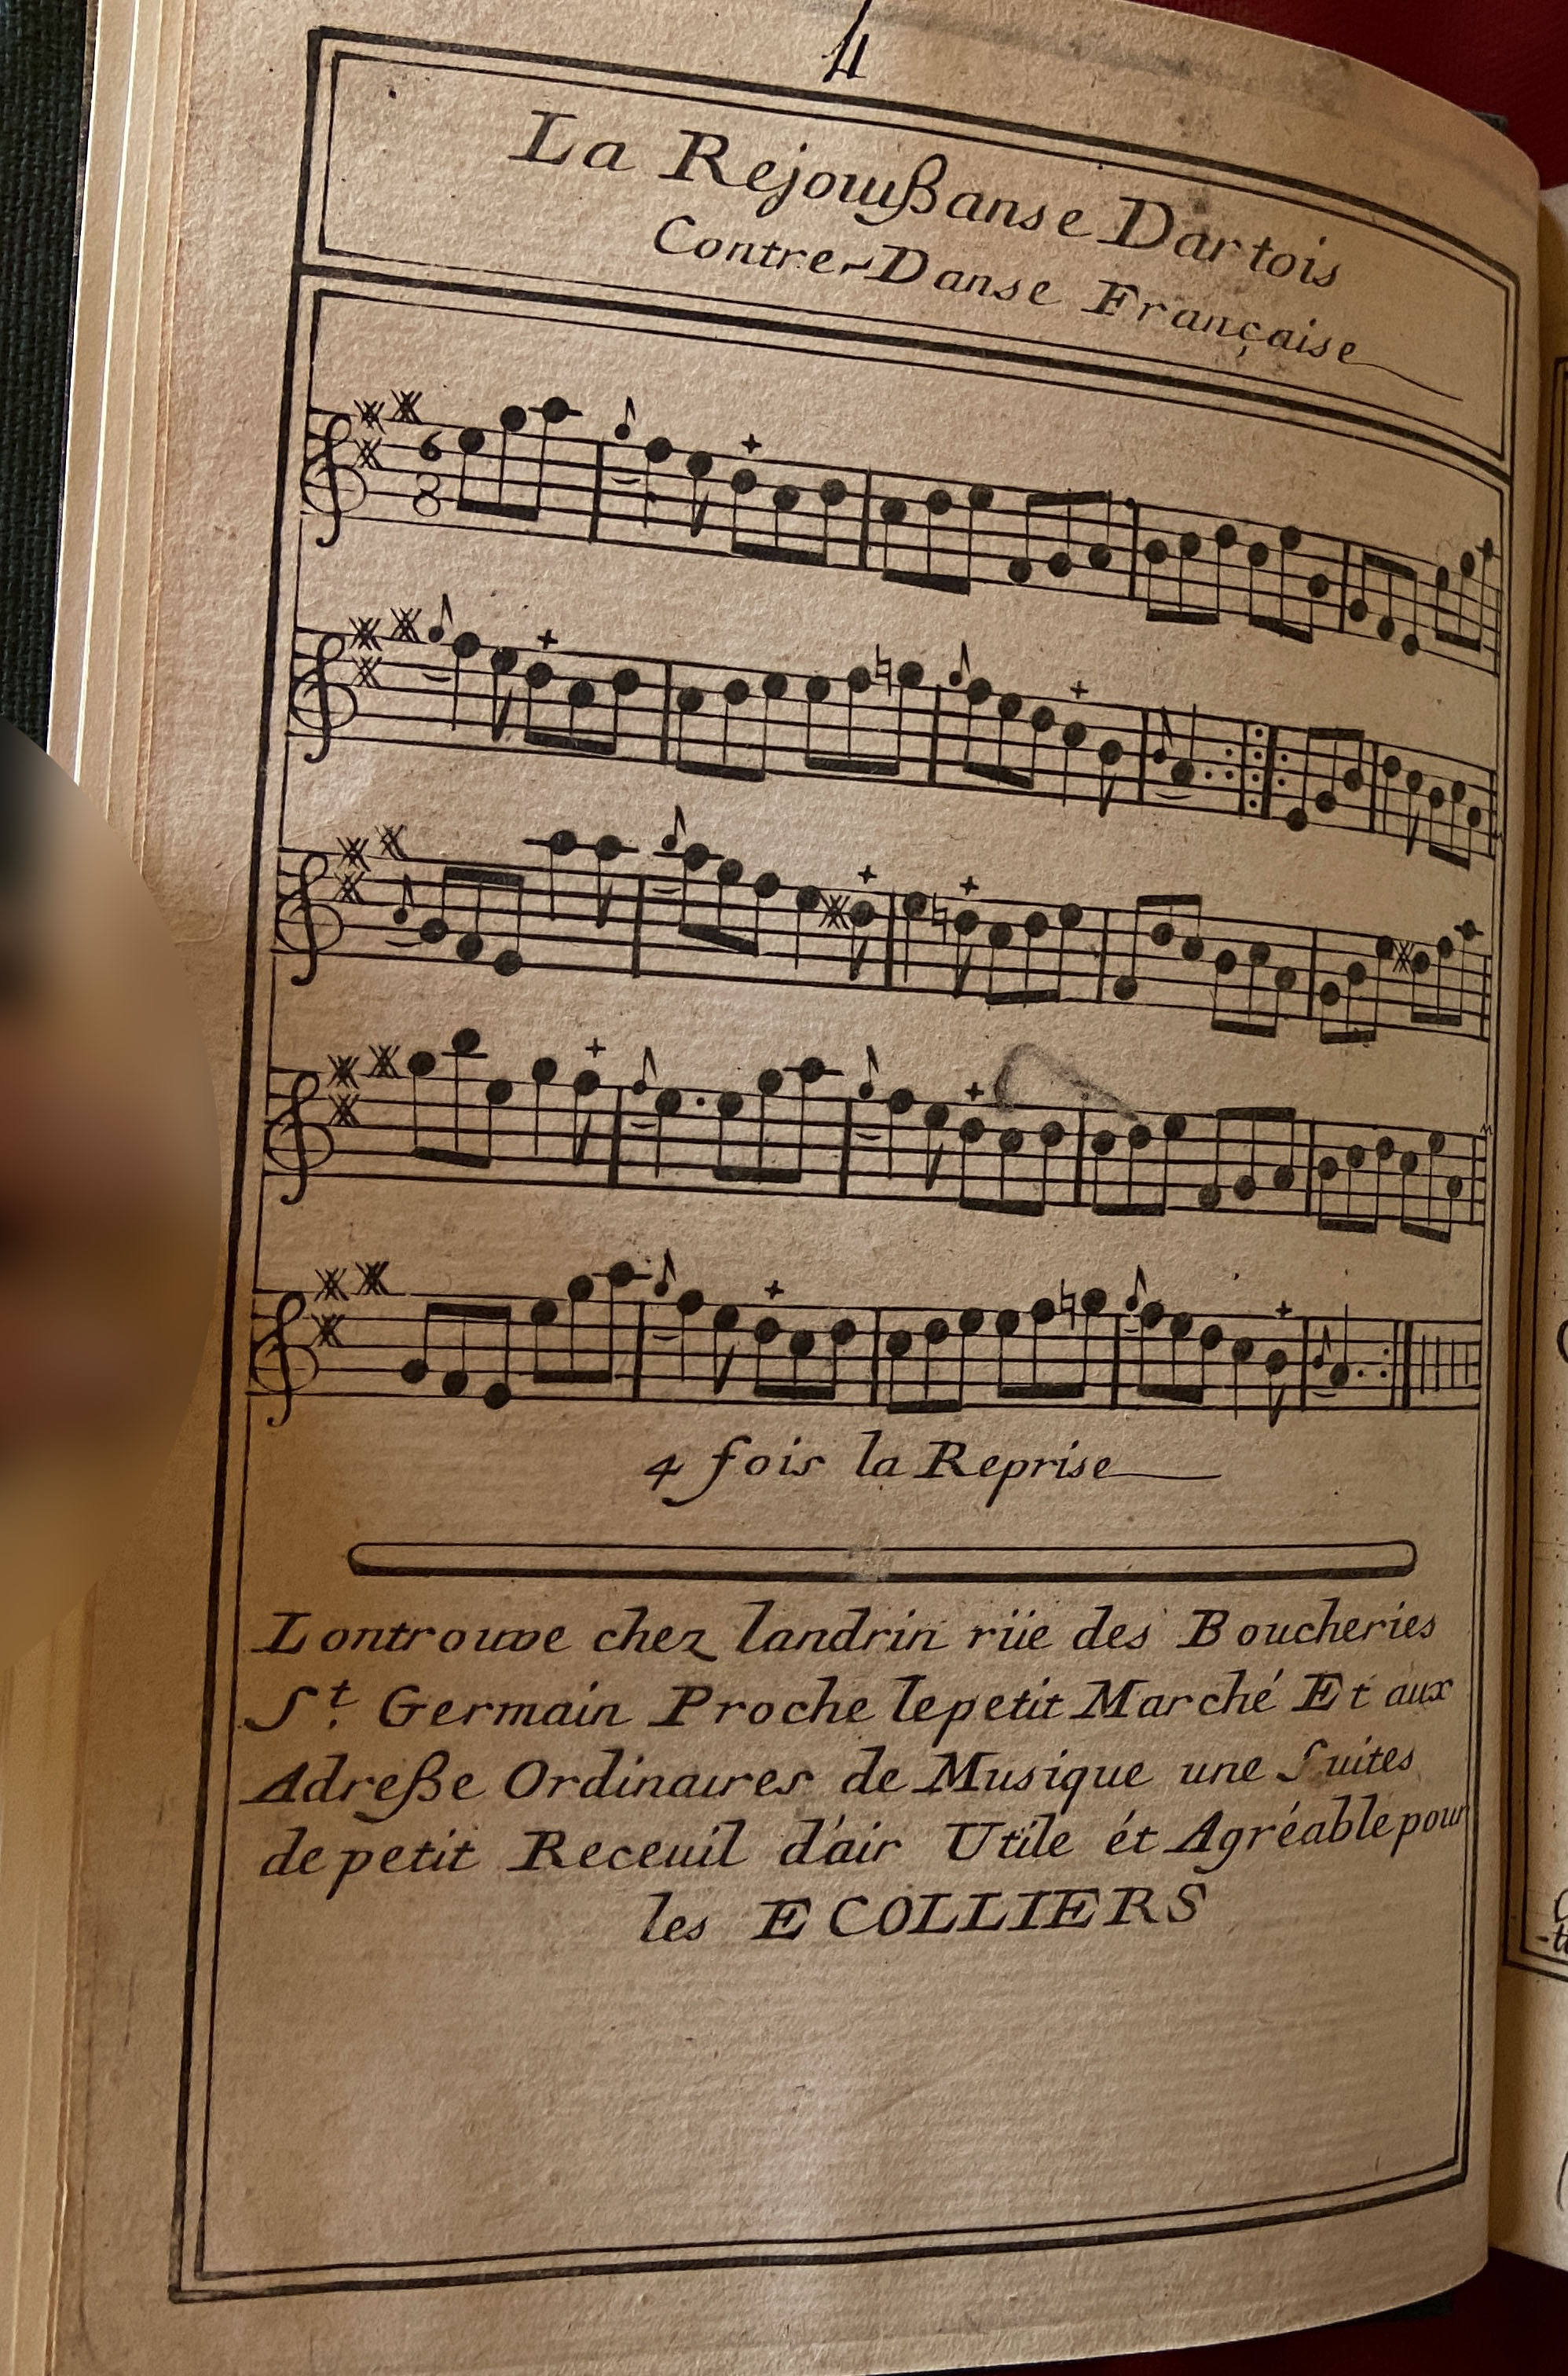 4
La Rejouißanse Dartois
Contre-Danse Française
6
8
4 fois la Reprise
Lontrouve chez landrin rüe des Boucheries
St. Germain Proche lepetit Marché Et aux
Adreße Ordinaires de Musique une Suites
de petit Receuil d'air Utile ét Agréable pour
les ECOLLIERS